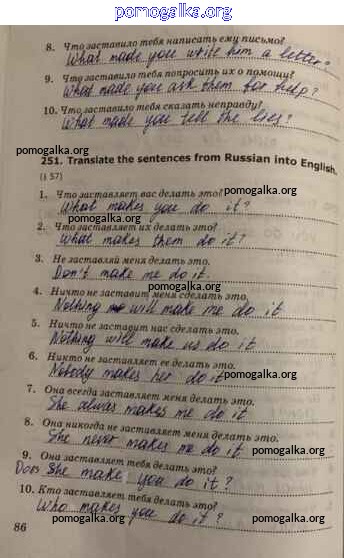 pomogalka.org
8. Что заставило тебя написать ему письмо?
What made you write him a letter?
9. Что заставило тебя попросить их о помощи?
What made you ask them for help?
pomogalka.org
10. Что заставило тебя сказать неправду?
What made you tell the lies?
pomogalka.org
251. Translate the sentences from Russian into English.
(§ 57)
1. Что заставляет вас делать это?
pomogalka.org
What makes you do it?
2. Что заставляет их делать это?
pomogalka.org
What makes them do it?
3. Не заставляй меня делать это.
Don't make me do it.
pomogalka.org
4. Ничто не заставит меня сделать это.
Nothing will make me do it
5. Ничто не заставит нас сделать это.
pomogalka.org
Nothing will make us do it
6. Никто не заставляет ее делать это.
Nobody makes her do it
pomogalka.org
7. Она всегда заставляет меня делать это.
She always makes me do it
8. Она никогда не заставляет меня делать это.
She never makes me do it
pomogalka.org
9. Она заставляет тебя делать это?
Does She make you do it?
10. Кто заставляет тебя делать это?
Who makes you do it?
86
pomogalka.org
pomogalka.org